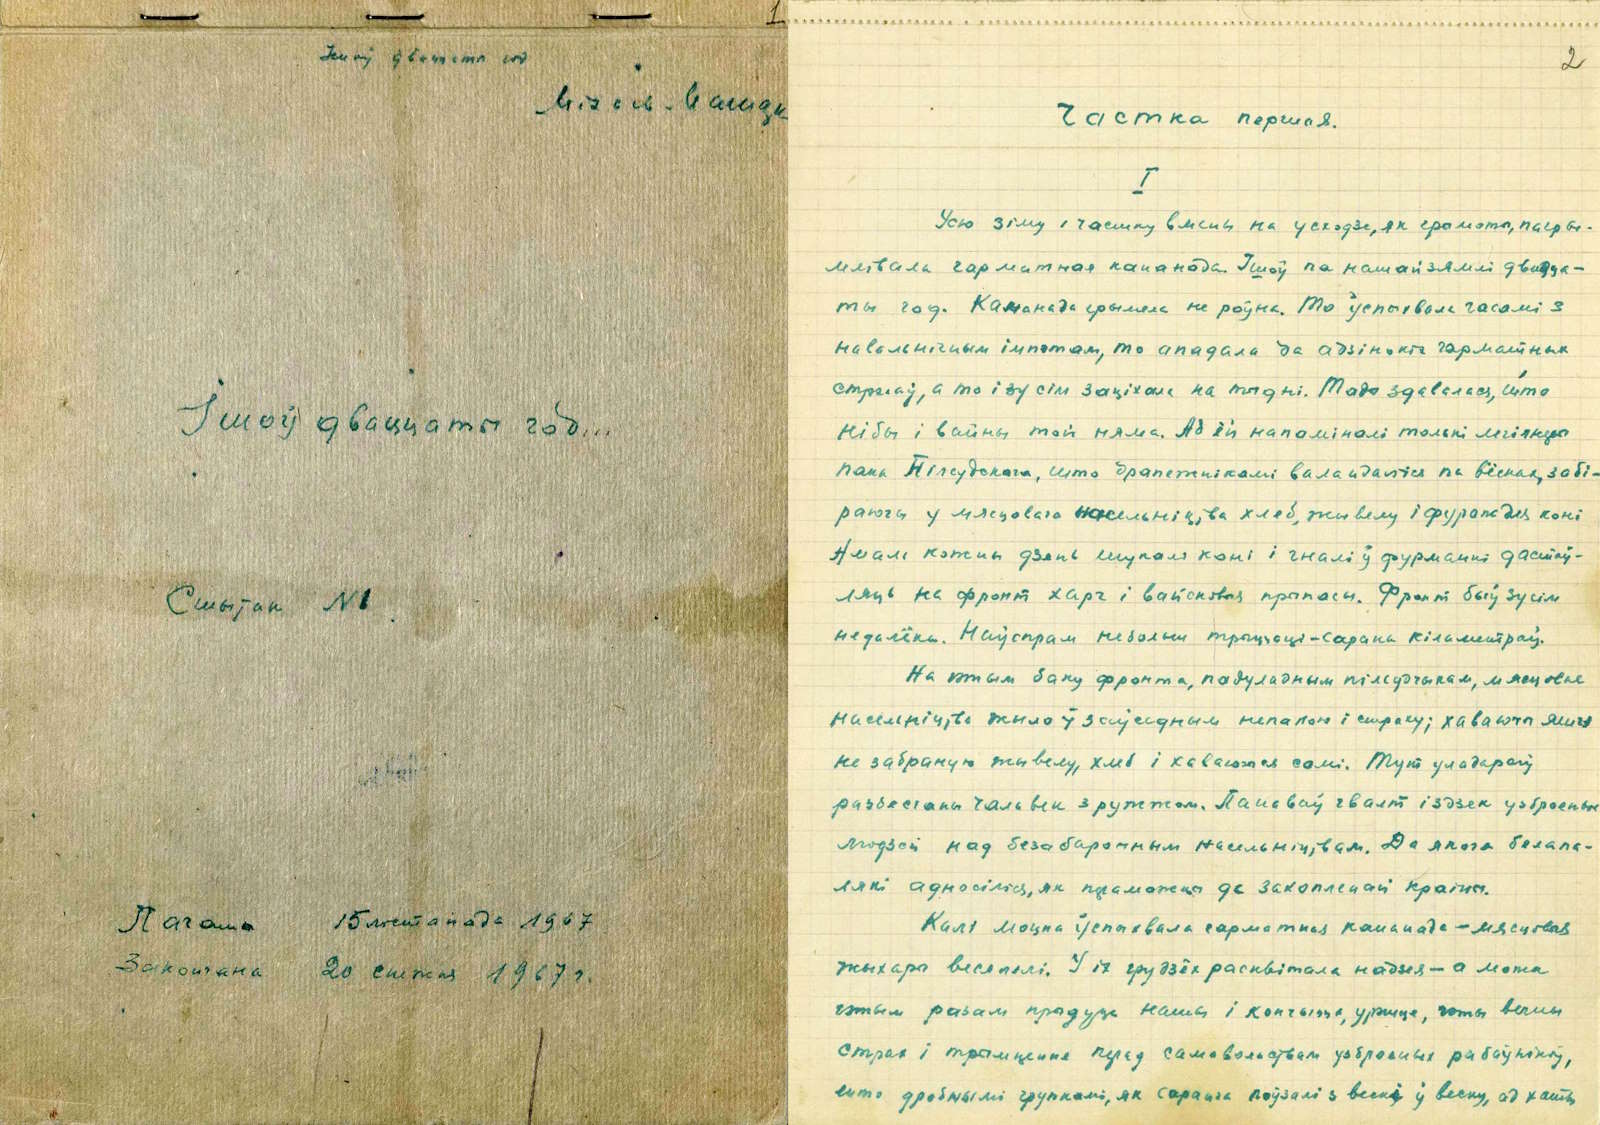 1
Ішоў дваццаты год
Міхась Машара
Ішоў дваццаты год...
Сшытак №1
Пачата 15 лістапада 1967
Закончана 20 снежня 1967 г.
2
Частка першая.
I
Усю зіму і частку вясны на усходзе, як грамоты, пагры-
мливала гарматная кананада. Ішоў па нашай зямлі двацца-
ты год. Кананада грымела не роўна. То ўспыхвала часамі з
навальнічным імпэтам, то ападала да адзінокіх гарматных
стрэлаў, а то і зусім заціхала на тыдні. Тады здавалася, што
нібы і вайны той няма. Аб ёй напаміналі толькі легіянеры
пана Пілсудскага, што драпежнікамі валандаліся па вёсках, забі-
раючы у мясцовага насельніцтва хлеб, жывёлу і фураж для коні
Амаль кожны дзень шукалі коні і гналі ў фурманкі дастаў-
ляць на фронт харч і вайсковыя прыпасы. Фронт быў зусім
недалёка. Наўспрам небольш трыццаці-сарака кіламетраў.
На гэтым баку фронта, падуладным пілсудчыкам, мясцовае
насельніцтва жыло ў заўсёдным непакоі і страху; хаваючы яшчэ
не забраную жывёлу, хлеб і хаваючыся самі. Тут уладарыў
разбэшчаны чалавек з ружжом. Панаваў гвалт і здзек узброеных
людзей над безабаронным насельніцтвам. Да якога белапа-
лякі адносіліся, як пераможцы да захопленай краіны.
Калі моцна ўспыхвала гарматная кананада – мясцовыя
жыхары веселелі. У іх грудзёх расквітала надзея – а можа
гэтым разам прыдуць нашы і кончыцца, урэшце, гэты вечны
страх і трымценне перад самавольствам узброеных рабаўнікоў,
што дробнымі групкамі, як саранча поўзалі з вёскі ў вёску, ад хаты